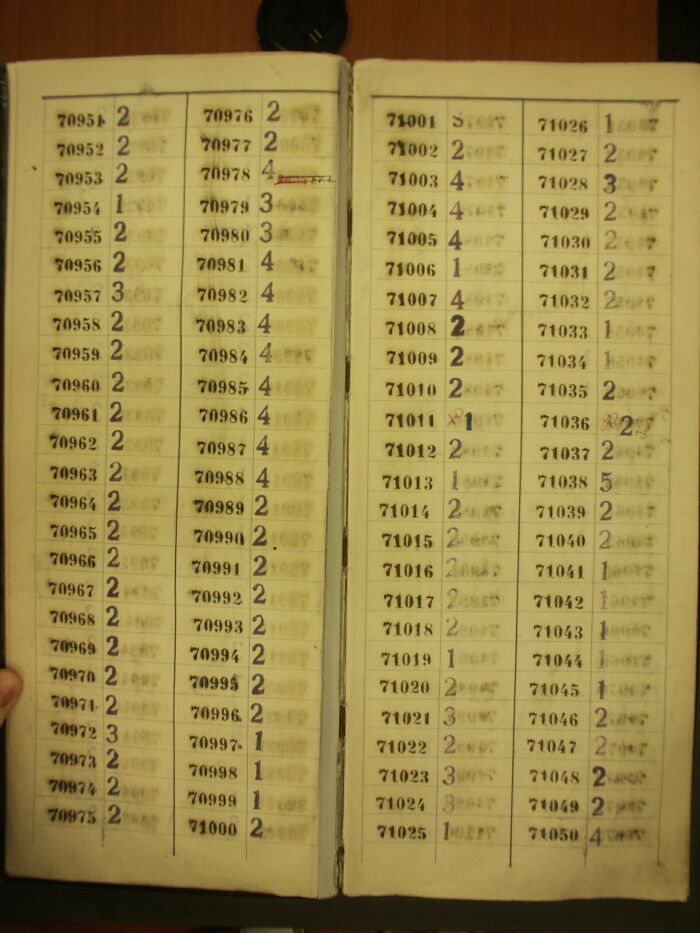 70951 2
70952 2
70953 2
70954 1
70955 2
70956 2
70957 3
70958 2
70959 2
70960 2
70961 2
70962 2
70963 2
70964 2
70965 2
70966 2
70967 2
70968 2
70969 2
70970 2
70971 2
70972 3
70973 2
70974 2
70975 2
70976 2
70977 2
70978 4
70979 3
70980 3
70981 4
70982 4
70983 4
70984 4
70985 4
70986 4
70987 4
70988 4
70989 2
70990 2
70991 2
70992 2
70993 2
70994 2
70995 2
70996 2
70997 1
70998 1
70999 1
71000 2
71001
71002 2
71003 4
71004 4
71005 4
71006 1
71007 4
71008 2
71009 2
71010 2
71011 1
71012 2
71013 1
71014 2
71015 2
71016 2
71017 2
71018 2
71019 1
71020 2
71021 3
71022 2
71023 3
71024 3
71025 1
71026 1
71027 2
71028 3
71029 2
71030 2
71031 2
71032 2
71033 1
71034 1
71035 2
71036 2
71037 2
71038 5
71039 2
71040 2
71041 1
71042 1
71043 1
71044 1
71045 1
71046 2
71047 2
71048 2
71049 2
71050 4